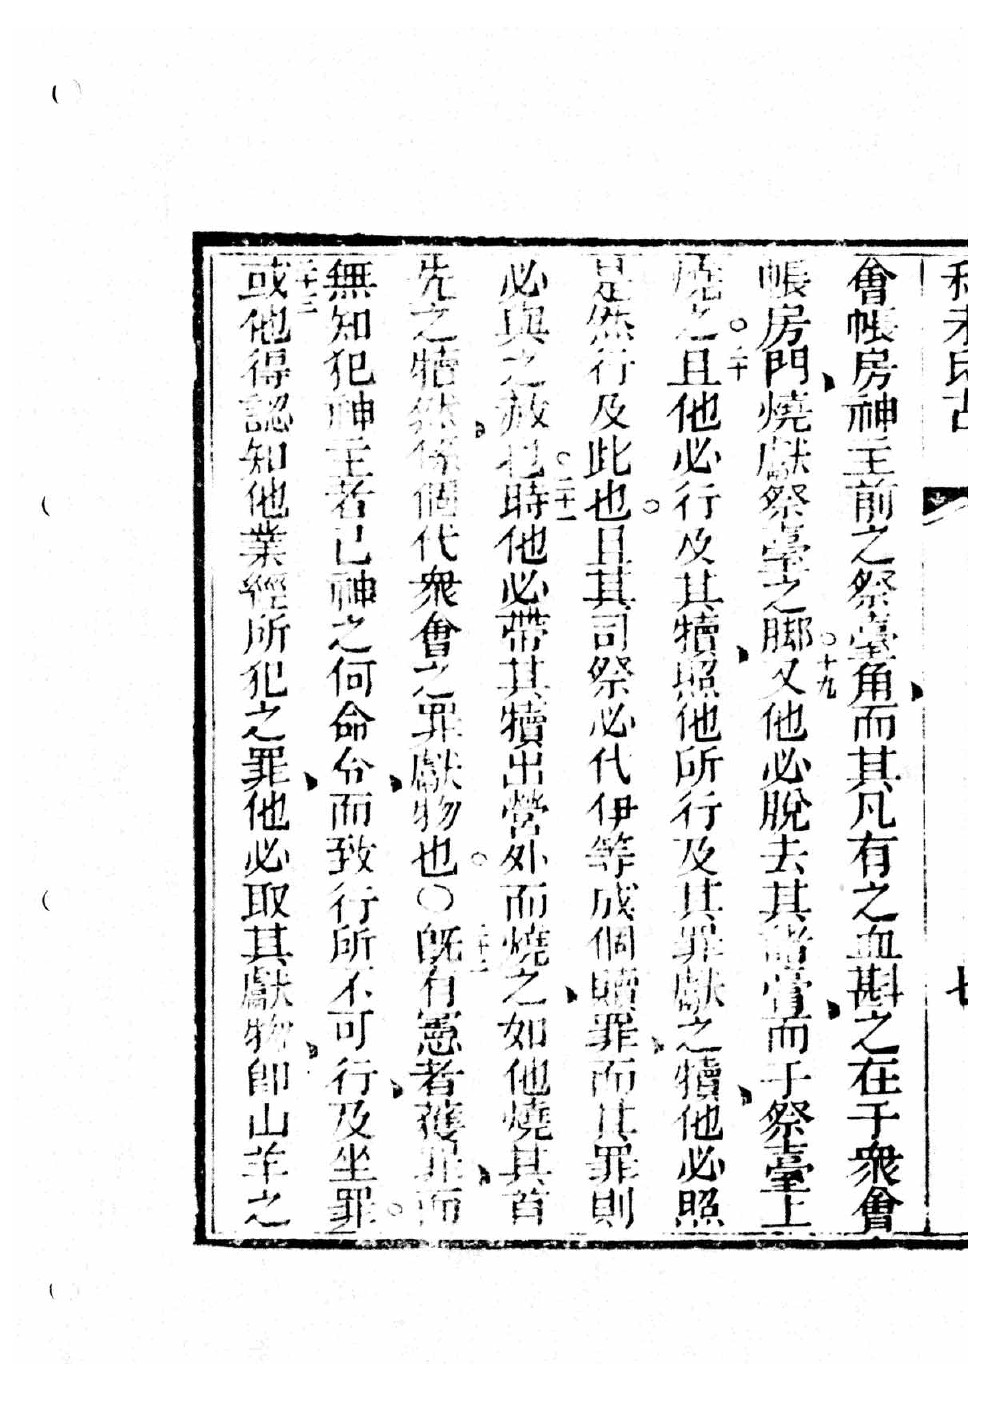 利未氏古
七
會帳房神主前之祭臺角而其凡有之血斟之在于衆會
帳房門燒獻祭臺之脚○十九又他必脫去其諸膏而于祭臺上
燒之○二十且他必行及其犢照他所行及其罪獻之犢他必照
是然行及此也○且其司祭必代伊等成個贖罪而其罪則
必與之赦也○二十一時他必帶其犢出營外而燒之如他燒其首
先之犢然係個代衆會之罪獻物也○○二十二旣有憲者獲罪而
無知犯神主者己神之何命令而致行所不可行及坐罪○
二十三或他得認知他業經所犯之罪他必取其獻物卽山羊之